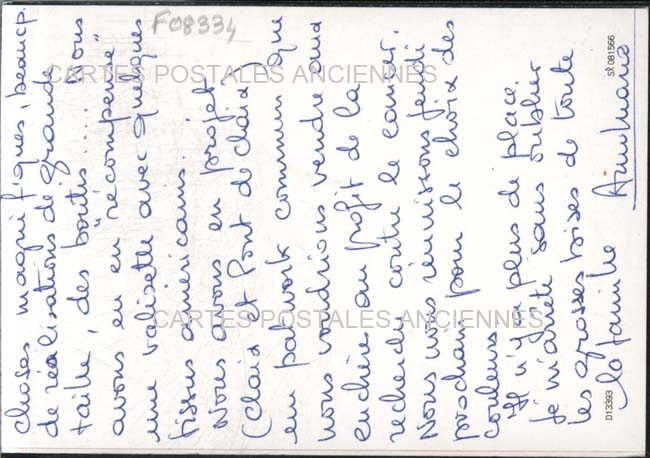 choses magnifiques, beaucp.
de réalisations de grande
taille, des boutis..... nous
avons eu en "récompense"
une valisette avec quelques
tissus américains.
Nous avons en projet
(Claix et Pont de claix)
en patwork commun que
nous voudrions vendre aux
enchère au profit de la
recherche contre le cancer.
Nous nous réunissons jeudi
prochain pour le choix des
couleurs
Il n'y a plus de place.
je m'arrête sans oublier
les grosses bises de toute
la famille
F08334
CARTES POSTALES ANCIENNES
CARTES POSTALES ANCIENNES
D13393
081566